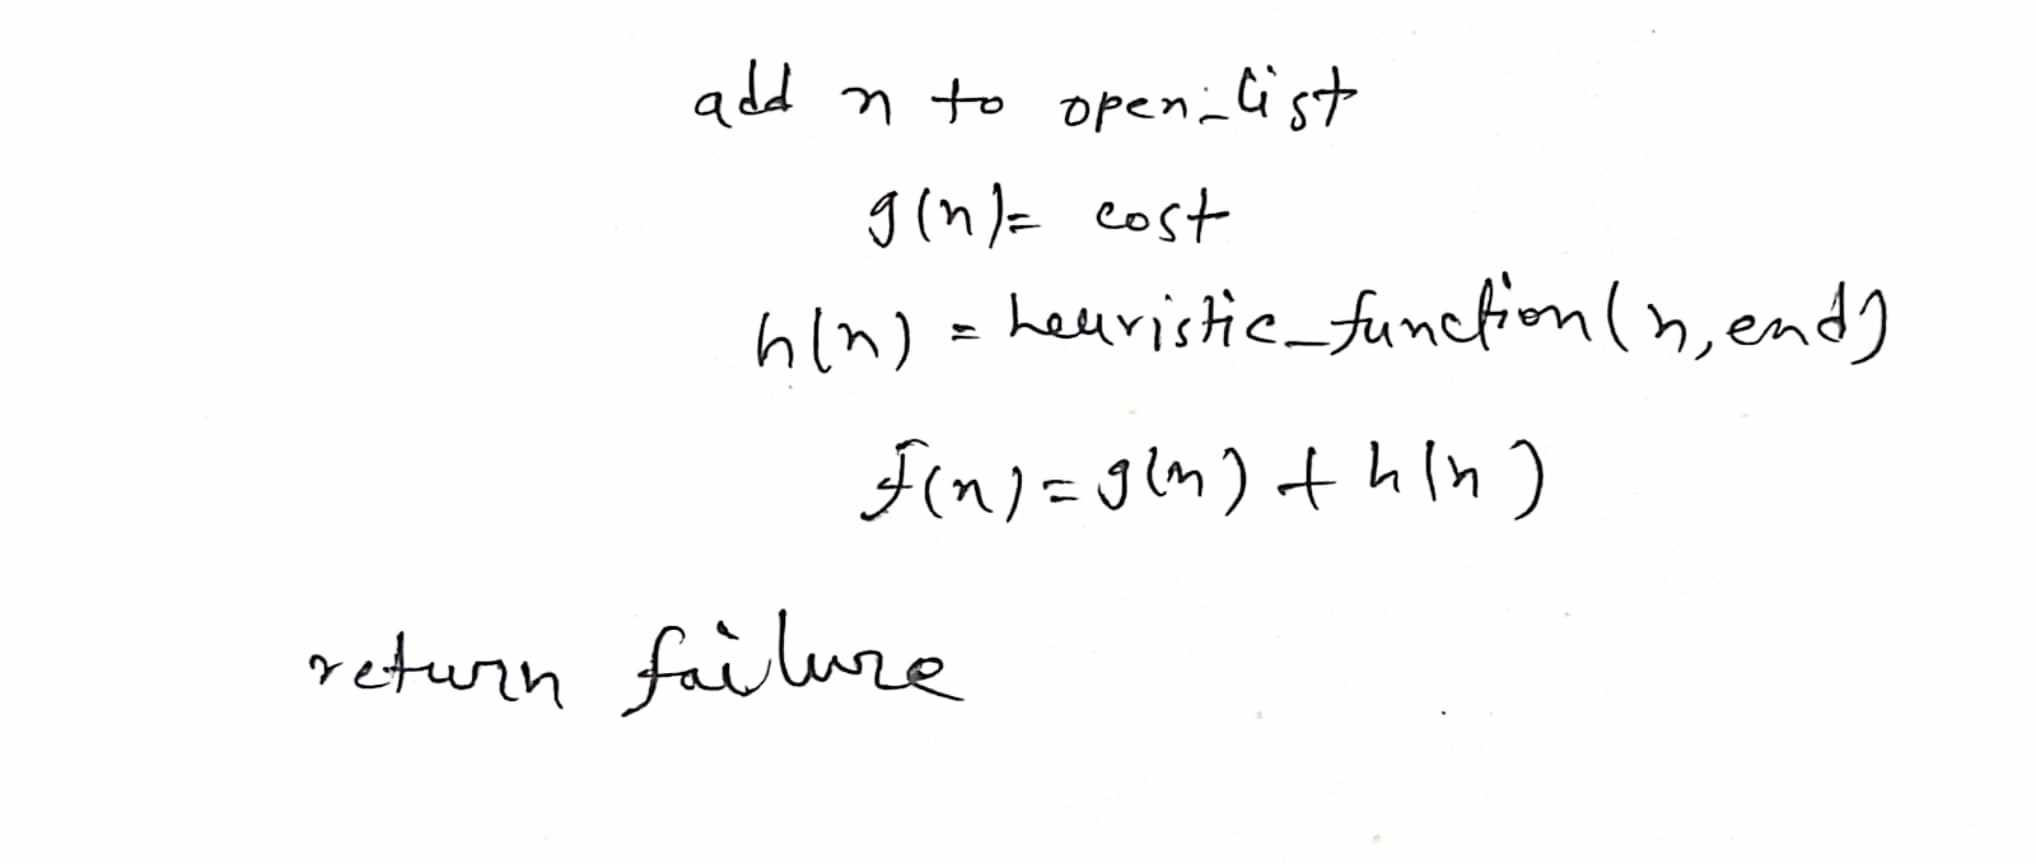 add n to open_list
g(n)= cost
h(n) = heuristic_function(n, end)
f(n) = g(n) + h(n)
return failure